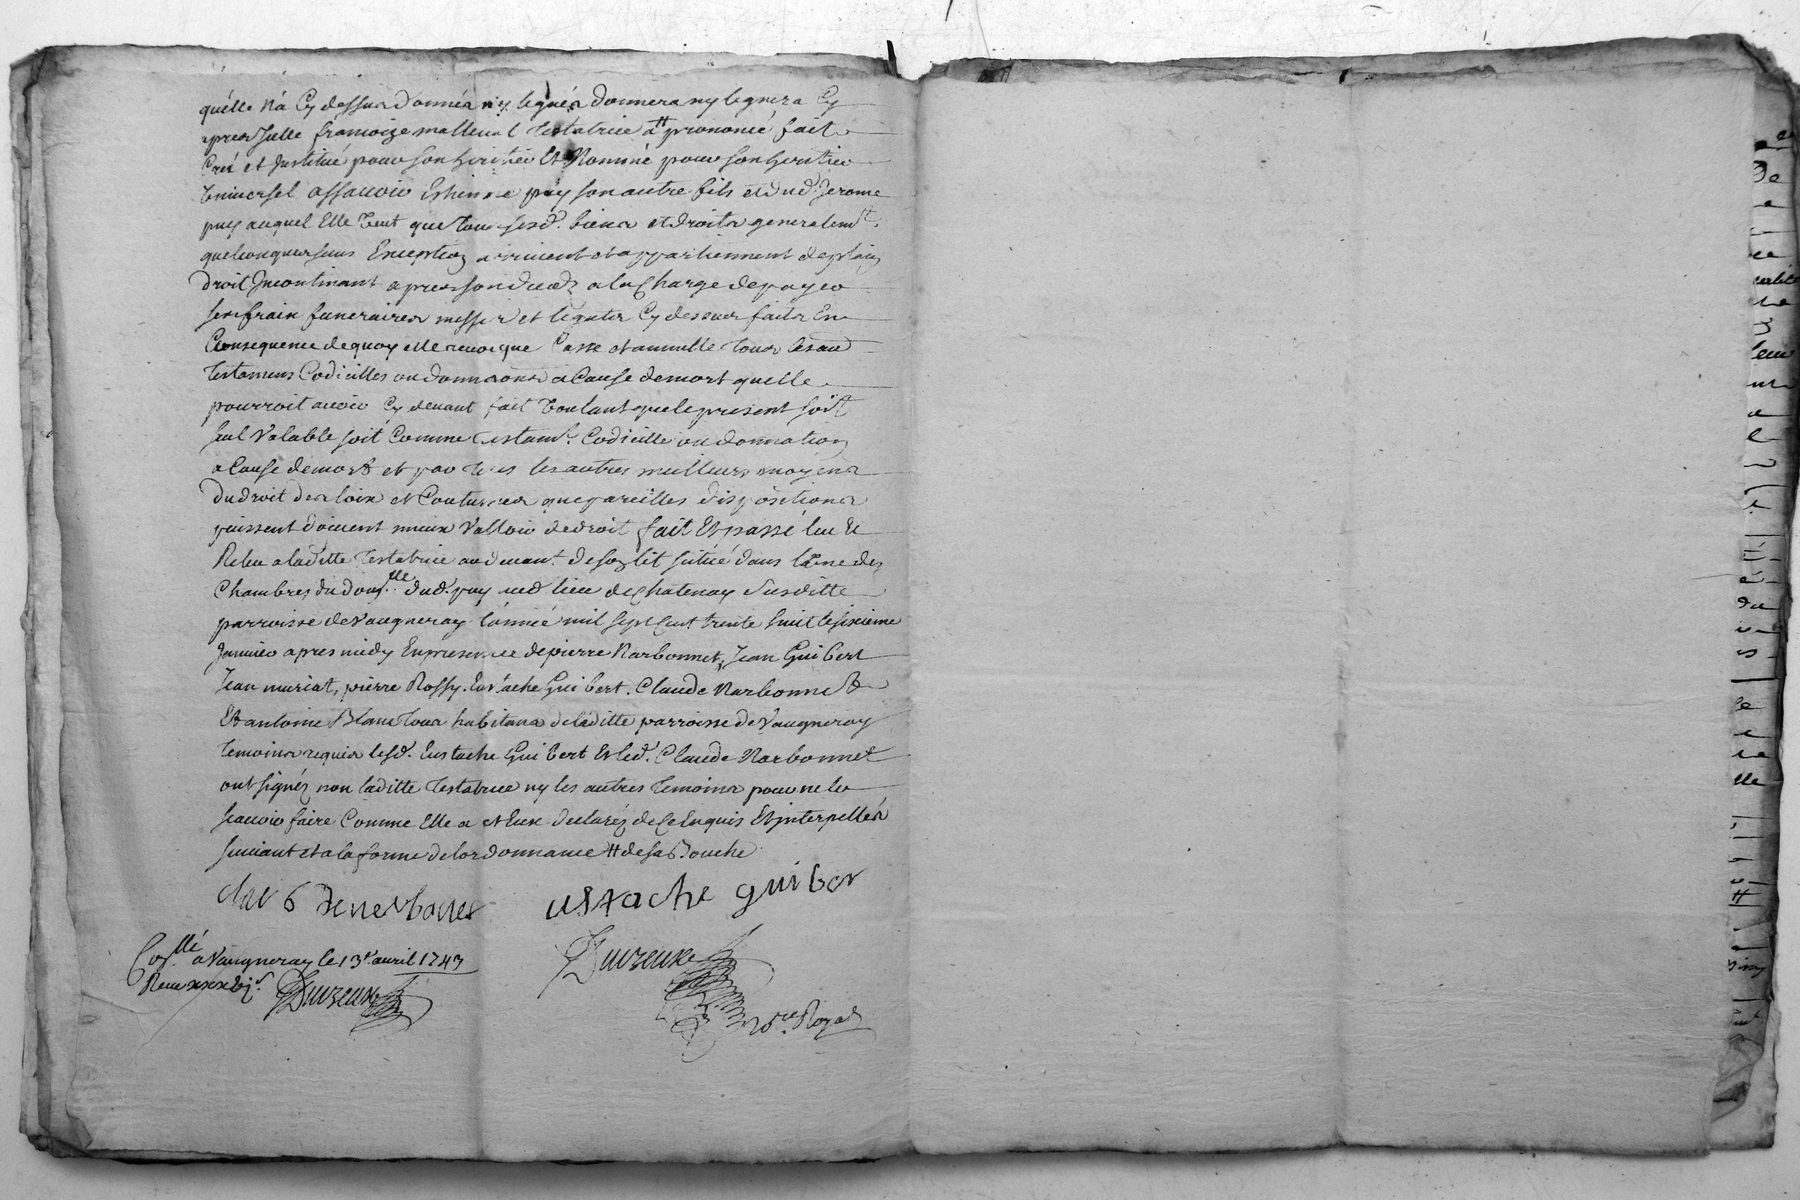 quelle n'a Cy dessus donnéa ny leguéa donnera ny leguera Cy
apres Jcelle francoize malleval Testatrice a # prononcé, fait
Creé et Justitué pour son heritier Et Nommé pour son heritier
Vniversel assavoir Estienne puy son autre fils et dud. Jerome
puy auquel Elle veut que tous sesd. biens et droits generalemt.
quelconques sans Exception arrivient et appartiennent de plain
droit Jncontinant apres son deced a la Charge de payer
ses frais funeraires messes et leguts Cy dessus faits En
Consequence de quoy elle revoque Casse et annulle tous les au
testamens Codicilles ou donnaons a Cause de mort quelle
pourroit avoir Cy devant fait voulant que le present soit
seul valable soit Comme testamt. Codicille ou donnation
a Cause de mort et par tous les autres meilleurs moyens
du droit des loix et Coutumes que pareilles dispositions
puissent doivent mieux valloir de droit fait Et passé leu Et
Releu a laditte testatrice au devant de son lit situé dans lune des
Chambres du domlle dud. puy aud. lieu de chatenay susditte
parroisse de Vaugneray l'année mil sept Cent trente huit le sixieme
Janvier apres midy En presence de pierre Narbonnet, Jean Guibert
Jean muriat, pierre Rossy. Eustache Guibert. Claude Narbonnet
Et antoine Blanc tous habitans de laditte parroisse de Vaugneray
temoins requis lesd. Eustache Guibert Et led. Claude Narbonnet
ont signéz non laditte testatrice ny les autres temoins pour ne le
scavoir faire Comme Elle a et Eux declaréz de Ce Enquis Et interpelléa
suivant et a la forme de lordonnance # de sa Bouche
ustache guiber
Conllé a Vaugneray le 13e. avril 1743
Receu
Nore. Royal